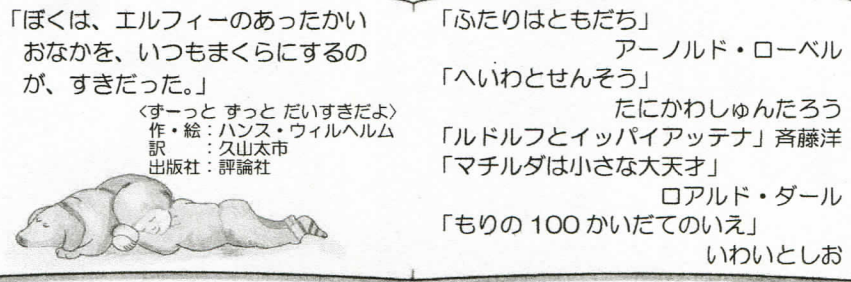 「ぼくは、エルフィーのあったかい
おなかを、いつもまくらにするの
が、すきだった。」
〈ずーっと ずっと だいすきだよ〉
作・絵：ハンス・ウィルヘルム
訳　　：久山太市
出版社：評論社
「ふたりはともだち」
アーノルド・ローベル
「へいわとせんそう」
たにかわしゅんたろう
「ルドルフとイッパイアッテナ」斉藤洋
「マチルダは小さな大天才」
ロアルド・ダール
「もりの100かいだてのいえ」
いわいとしお